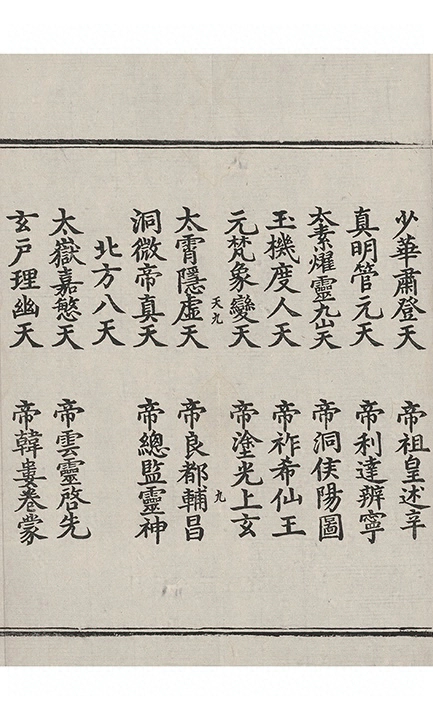 少華肅登天　帝祖皇述辛
真明管元天　帝利達辨寧
太素燿靈九山天　帝洞伕陽圖
玉機度人天　帝祚希仙王
元梵象變天　帝塗光上玄
天九　九
太霄隱虛天　帝良都輔昌
洞微帝真天　帝總監靈神
北方八天
太嶽嘉慜天　帝雲靈啓先
玄戸理幽天　帝韓婁卷蒙